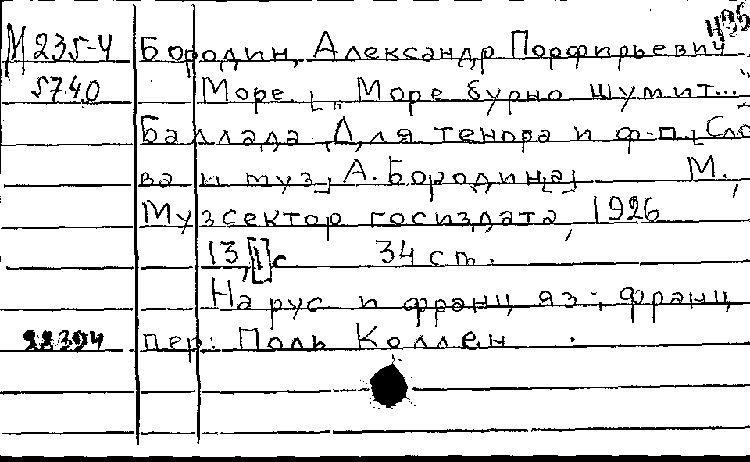 М 235-4 Бородин, Александр Порфирьевич
5740 Море. [„Море бурно шумит..."
Баллада. Для тенора и ф-п. [Сло
ва и муз.], А. Бородин[а] М.,
Музсектор госиздата, 1926
13, [1] с 34 см.
На рус и франц яз.; франц
22394 пер: Поль Коллен.